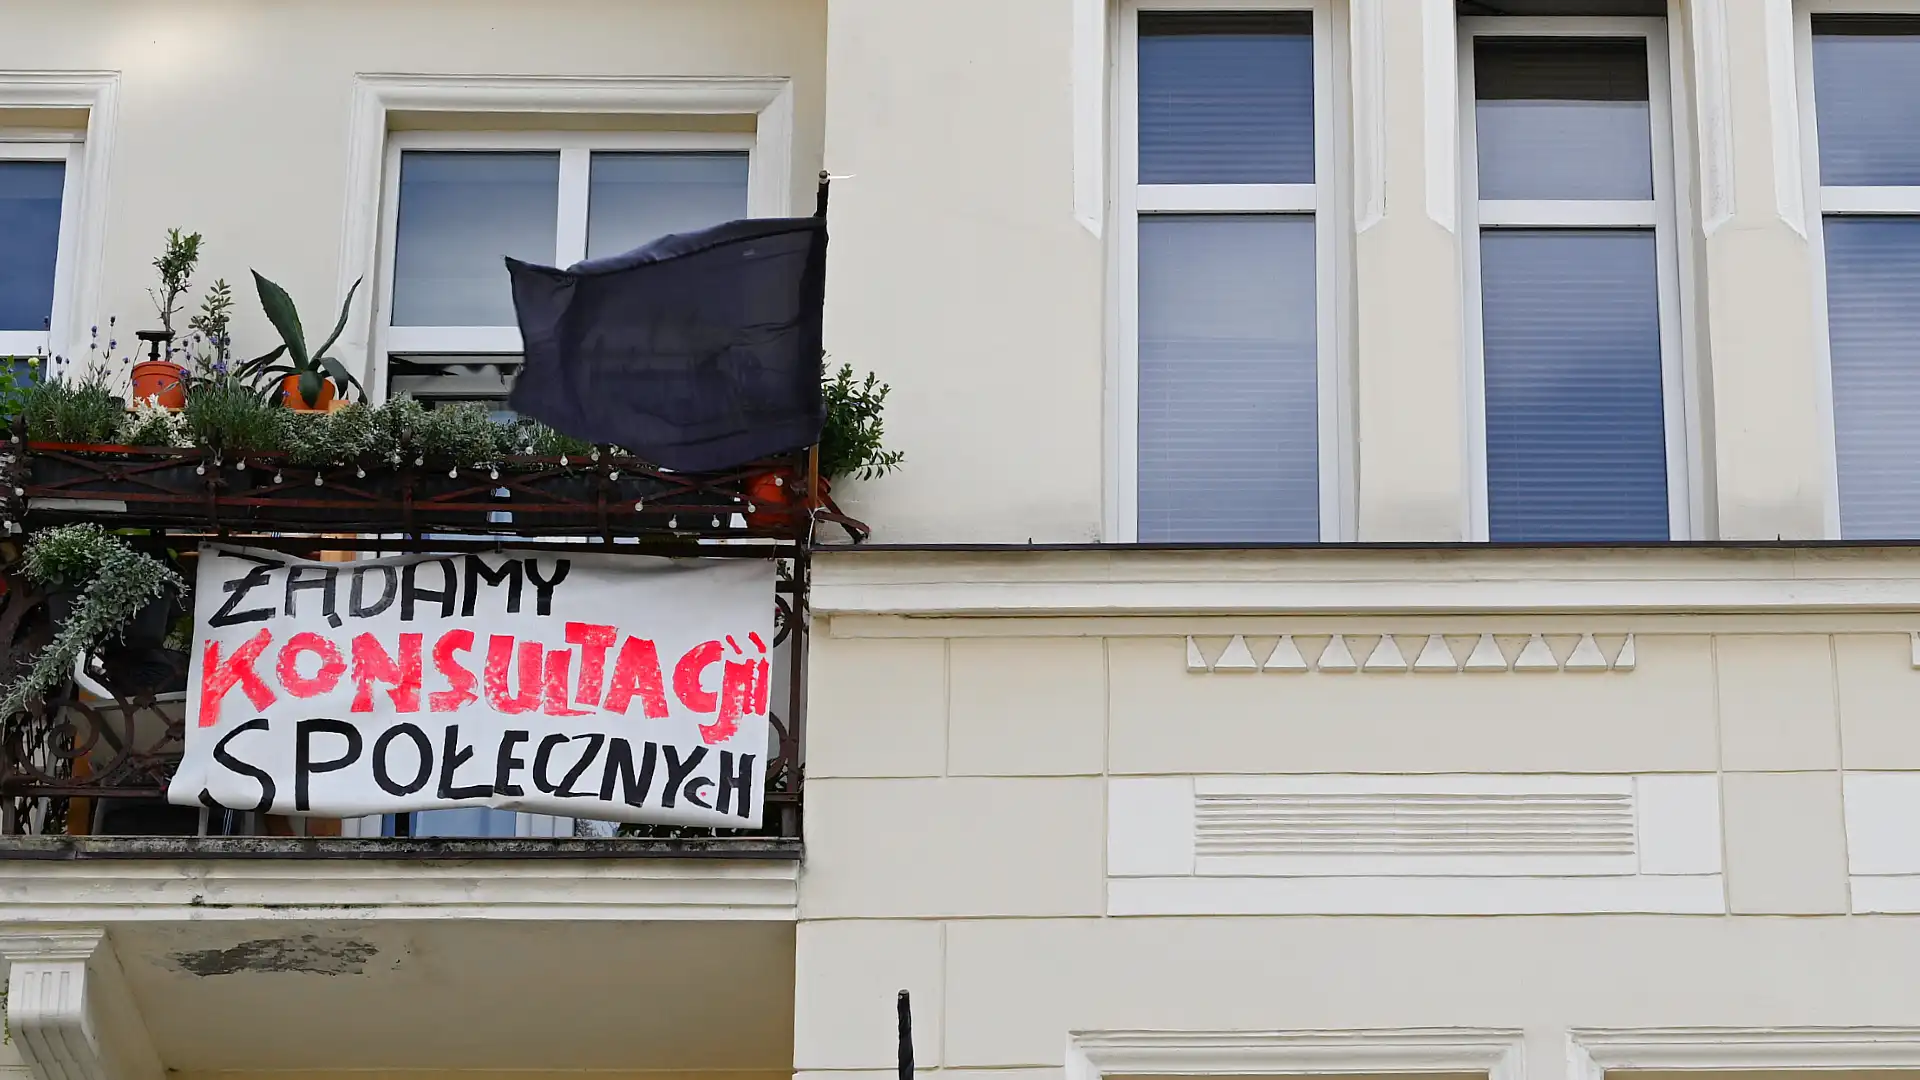 ŻĄDAMY
KONSULTACJI
SPOŁECZNYCH